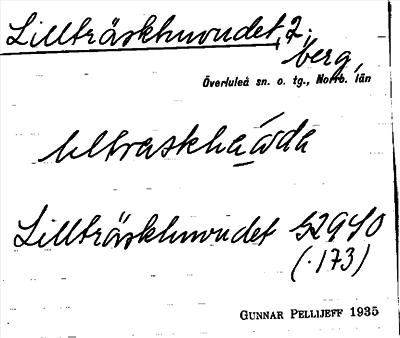 Lillträskhuvudet, 2;
berg,
Överluleå sn. o. tg., Norrb. län
Lillträskhuvudet
(.173)
GUNNAR PELLIJEFF 1935